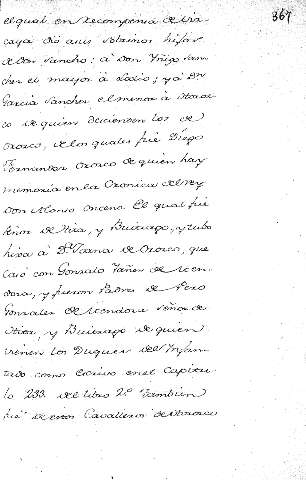 367
el qual en recompensa de Viz-
caya dió a sus sobrinos hijos
de Don Sancho: á Don Yñigo San-
chez el mayor á Lodio; y á Dn
Garcia Sanchez el menor á Orozc
o de quien decienden los de
Orozco, de los quales fué Diego
Fernandez Orozco de quien hay
memoria en la Cronica del rey
Don Alonso Onceno. El qual fué
señor de Hita, y Buitrago, y tubo
hixa á Da. Juana de Orozco, que
casó con Gonzalo Yañez de Men-
doza, y fueron Padres de Pero
Gonzalez de Mendoza Señor de
Hita, y Buitrago de quien
vienen los Duques del Ynfan-
tado como escrivo en el Capitu-
lo 233 del libro 2º. Tambien
fué de estos Cavalleros de Orozco